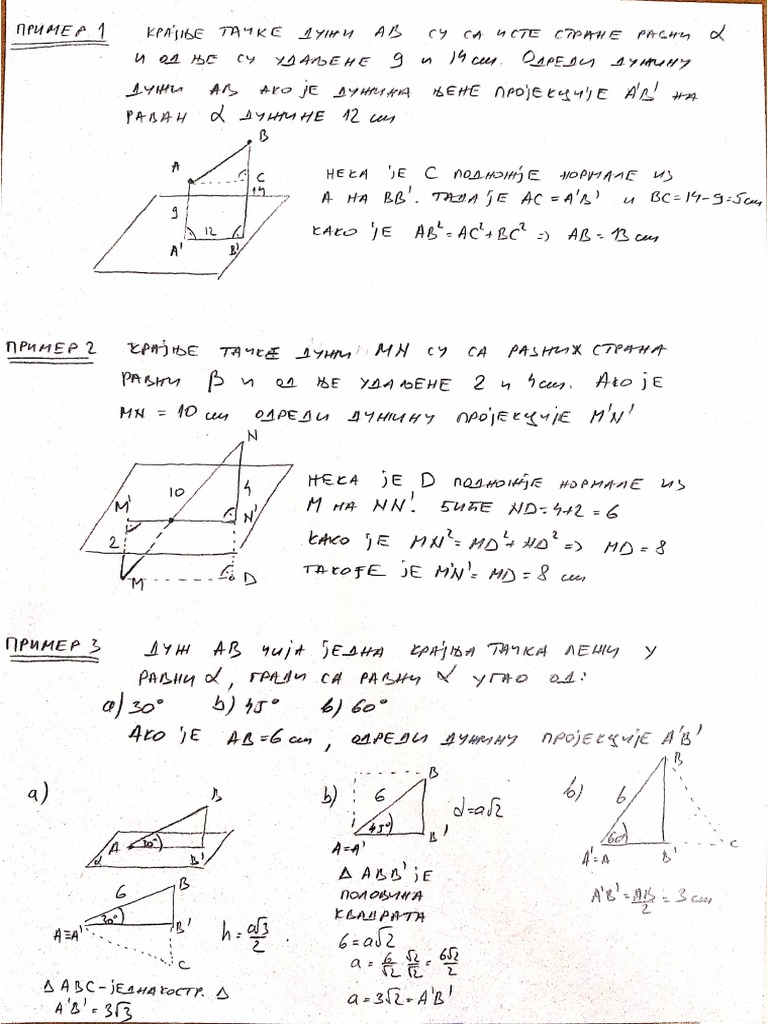 ПРИМЕР 1 КРАЈЊЕ ТАЧКЕ ДУЖИ AB СУ СА ИСТЕ СТРАНЕ РАВНИ α
И ОД ЊЕ СУ УДАЉЕНЕ 9 И 14 cm. ОДРЕДИ ДУЖИНУ
ДУЖИ AB АКО ЈЕ ДУЖИНА ЊЕНЕ ПРОЈЕКЦИЈЕ A'B' НА
РАВАН α ДУЖИНЕ 12 cm
B
A
C
14
9
12
A'
B'
НЕКА ЈЕ C ПОДНОЖЈЕ НОРМАЛЕ ИЗ
A НА BB'. ТАДА ЈЕ AC = A'B' И BC=14-9=5cm
КАКО ЈЕ AB²=AC²+BC² => AB=13 cm
ПРИМЕР 2 КРАЈЊЕ ТАЧКЕ ДУЖИ MN СУ СА РАЗНИХ СТРАНА
РАВНИ β И ОД ЊЕ УДАЉЕНЕ 2 И 4cm. АКО ЈЕ
MN = 10 cm ОДРЕДИ ДУЖИНУ ПРОЈЕКЦИЈЕ M'N'
N
10
4
M'
N'
2
M
D
НЕКА ЈЕ D ПОДНОЖЈЕ НОРМАЛЕ ИЗ
M НА NN'. БИЋЕ ND=4+2=6
КАКО ЈЕ MN²=MD²+ND² => MD=8
ТАКОЂЕ ЈЕ M'N'=MD=8 cm
ПРИМЕР 3 ДУЖ AB ЧИЈА ЈЕДНА КРАЈЊА ТАЧКА ЛЕЖИ У
РАВНИ α, ГРАДИ СА РАВНИ α УГАО ОД:
а) 30° б) 45° в) 60°
АКО ЈЕ AB=6 cm, ОДРЕДИ ДУЖИНУ ПРОЈЕКЦИЈЕ A'B'
а)
B
A
30°
B'
α
6
B
30°
A≡A'
B'
C
h = a√3/2
Δ ABC-ЈЕДНАКОСТР. Δ
A'B' = 3√3
б)
B
6
45°
A=A'
B'
d=a√2
Δ ABB' ЈЕ
ПОЛОВИНА
КВАДРАТА
6=a√2
a = 6/√2 · √2/√2 = 6√2/2
a = 3√2 = A'B'
в)
B
6
60°
A'=A
B'
C
A'B' = AB/2 = 3 cm